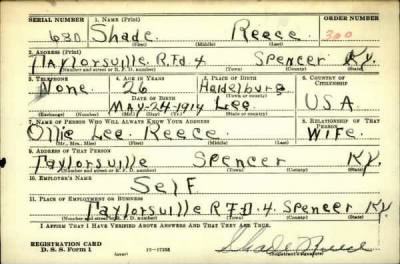 SERIAL NUMBER 1. NAME (Print) ORDER NUMBER
630 Shade Reece 300
(First) (Middle) (Last)
2. ADDRESS (Print)
Taylorsville R.F.d. 4 Spencer Ky.
(Number and street or R. F. D. number) (Town) (County) (State)
3. TELEPHONE 4. AGE IN YEARS 5. PLACE OF BIRTH 6. COUNTRY OF CITIZENSHIP
None 26 Heidelburg
DATE OF BIRTH
MAY-24-1914 Lee USA
(Exchange) (Number) (Mo.) (Day) (Yr.) (State or country)
7. NAME OF PERSON WHO WILL ALWAYS KNOW YOUR ADDRESS 8. RELATIONSHIP OF THAT PERSON
Ollie Lee Reece Wife
(Mr., Mrs., Miss) (First) (Middle) (Last)
9. ADDRESS OF THAT PERSON
Taylorsville Spencer Ky.
(Number and street or R. F. D. number) (Town) (County) (State)
10. EMPLOYER'S NAME
Self
11. PLACE OF EMPLOYMENT OR BUSINESS
Taylorsville R.F.D. 4. Spencer Ky.
(Number and street or R. F. D. number) (Town) (County) (State)
I AFFIRM THAT I HAVE VERIFIED ABOVE ANSWERS AND THAT THEY ARE TRUE.
REGISTRATION CARD
D. S. S. Form 1 (over) Shade Reece
(Registrant's signature)